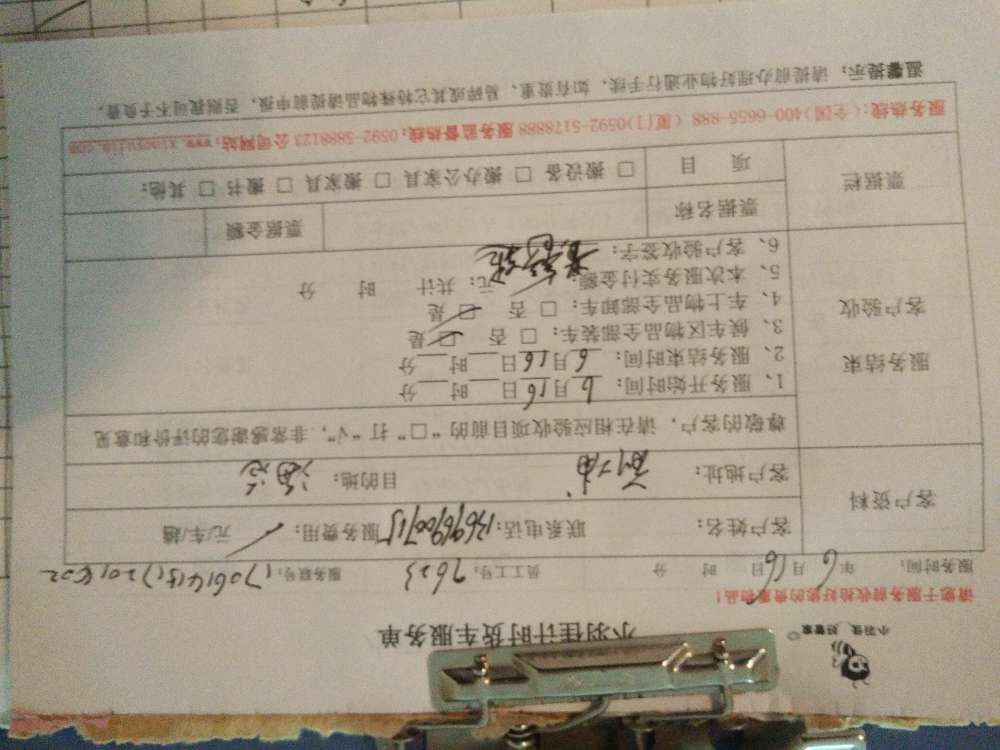 小羽佳 好管家
小羽佳计时货车服务单
请您于服务前收拾好您的贵重物品！
服务时间： 年 6 月 16 日 时 分 员工工号：7623 服务联号：
客户资料
客户姓名： 联系电话：13696900715 服务费用： 元/车/趟
客户地址： 目的地：
尊敬的客户，请在相应验收项目前的“□”打“√”，非常感谢您的评价和意见
服务结束
客户验收
1、服务开始时间：6月16日 时 分
2、服务结束时间：6月16日 时 分
3、候车区物品全部装车：□ 否 □ 是
4、车上物品全部卸车：□ 否 □ 是
5、本次服务实付金额： 元；共计 时 分
6、客户验收签字：
票据栏
票据名称 票据金额
项 目 □ 搬设备 □ 搬办公家具 □ 搬家具 □ 搬书 □ 其他：
服务热线：（全国）400-6655-888（厦门）0592-5178888 服务监督热线：0592-5888123 公司网站：www.xiaoyujia.com
温馨提示：请提前办理好物业通行手续，如有贵重、易碎或其它特殊物品请提前申报，否则我司不予负责。